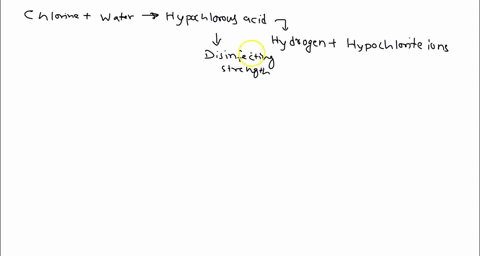 Chlorine + Water → Hypochlorous acid
↓ Hydrogen + Hypochlorite ions
Disinfecting
strength